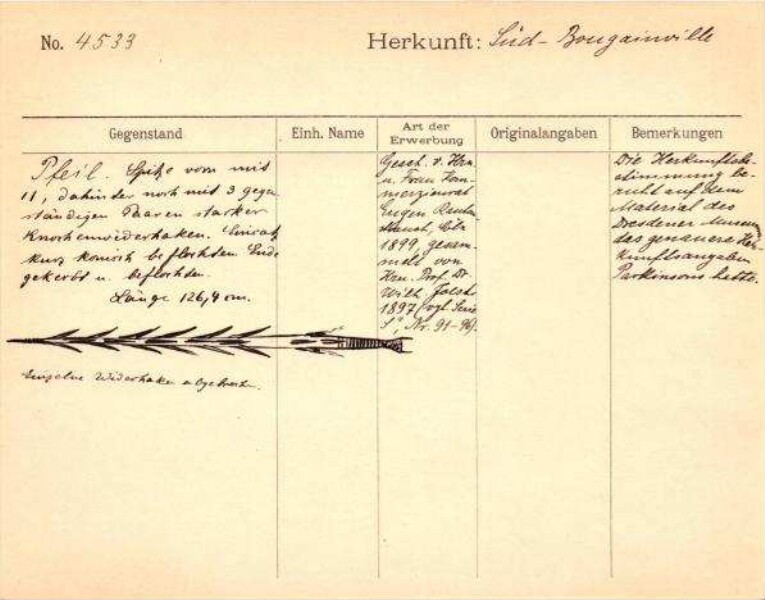 No. 4533
Herkunft: Süd-Bougainville
Gegenstand
Einh. Name
Art der Erwerbung
Originalangaben
Bemerkungen
Pfeil. Spitze vorn mit
11, dahinter noch mit 3 gegen
ständigen Paaren starker
Knochenwiderhaken. Einsatz
kurz konisch beflochten. Ende
gekerbt u. beflochten.
Länge 126,4 cm.
Einzelne Widerhaken abgebrochen.
Gesch. v. Hrn.
u. Frau Kom-
merzienrat
Eugen Rauten-
strauch, Cöln
1899, gesam-
melt von
Hrn. Prof. Dr.
Wilh. Joest
1897 (vgl. Serie
Nr. 91-96).
Die Herkunftsbe-
stimmung be-
ruht auf dem
Material des
Dresdener Museums
das genauere Her-
kunftsangaben
Parkinsons hatte.